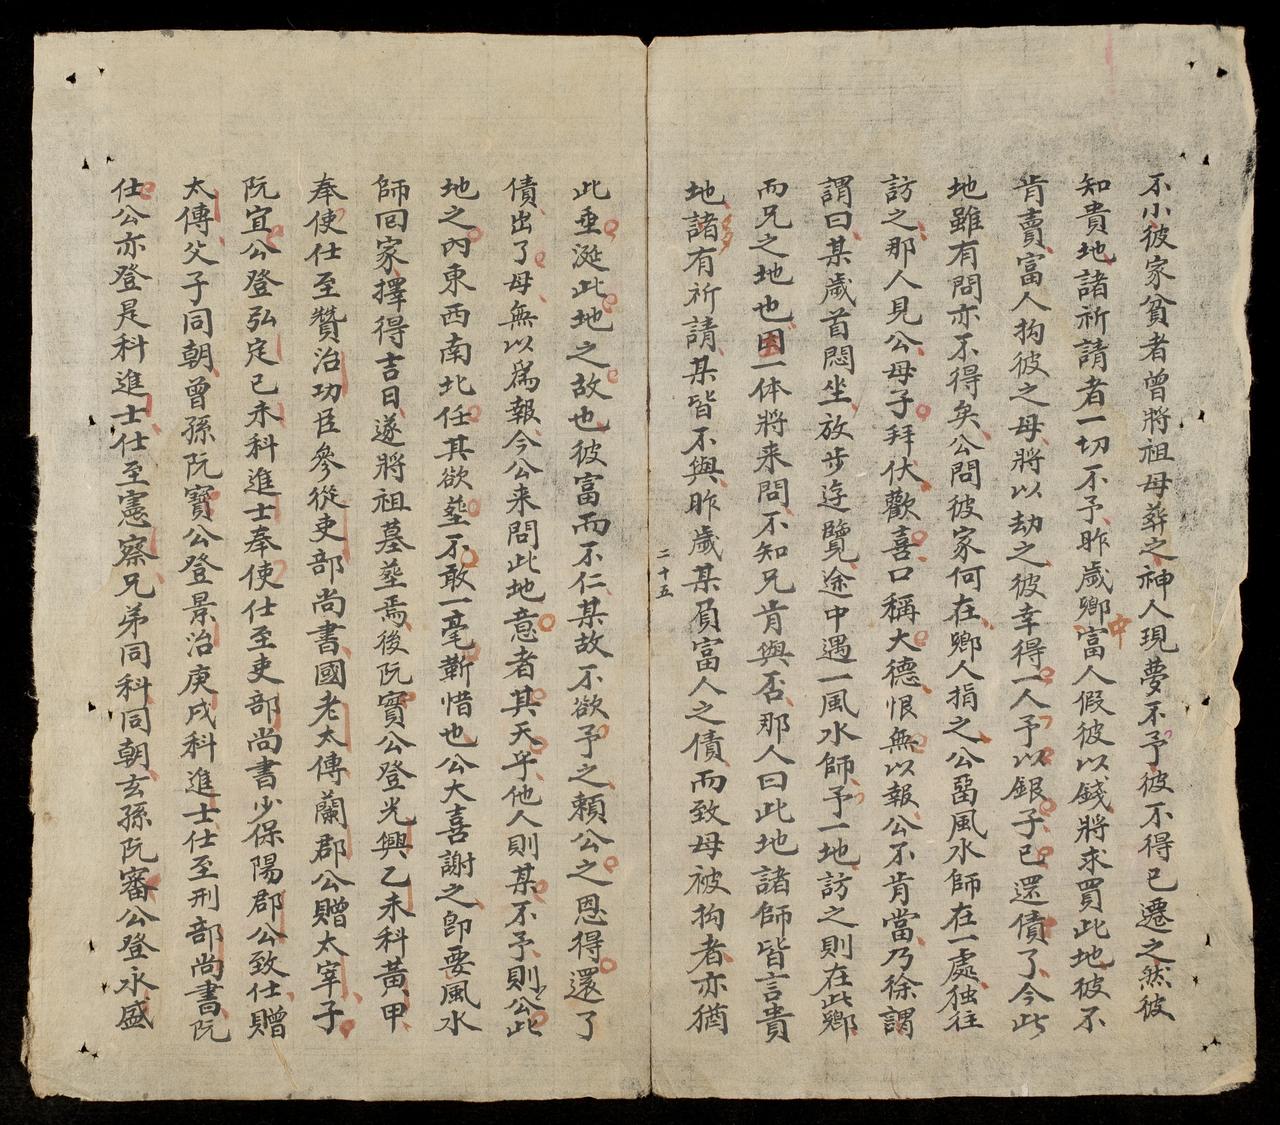 不小彼家貧者曾將祖母葬之神人現夢不予彼不得已遷之然彼
知貴地諸祈請者一切不予昨歲鄉中富人假彼以錢將求買此地彼不
肯賣富人拘彼之母將以劫之彼幸得一人予以銀子已還債了今此
地雖有問亦不得矣公問彼家何在鄉人指之公畱風水師在一處独往
訪之那人見公母子拜伏歡喜口稱大德恨無以報公不肯當乃徐謂
謂曰某歲首悶坐放步遊覽途中遇一風水師予一地訪之則在此鄉
而兄之地也因一体將来問不知兄肯與否那人曰此地諸師皆言貴
地諸有祈請某皆不與昨歲某負富人之債而致母被拘者亦猶
二十五
此垂涎此地之故也彼富而不仁某故不欲予之賴公之恩得還了
債出了母無以爲報今公来問此地意者其天乎他人則某不予則公此
地之內東西南北任其欲塟不敢一毫靳惜也公大喜謝之即要風水
師回家擇得吉日遂將祖墓塟焉後阮實公登光興乙未科黃甲
奉使仕至贊治功臣參從吏部尚書國老太傅蘭郡公贈太宰子
阮宜公登弘定己未科進士奉使仕至吏部尚書少保陽郡公致仕贈
太傅父子同朝曾孫阮寶公登景治庚戌科進士仕至刑部尚書阮
仕公亦登是科進士仕至憲察兄弟同科同朝玄孫阮審公登永盛